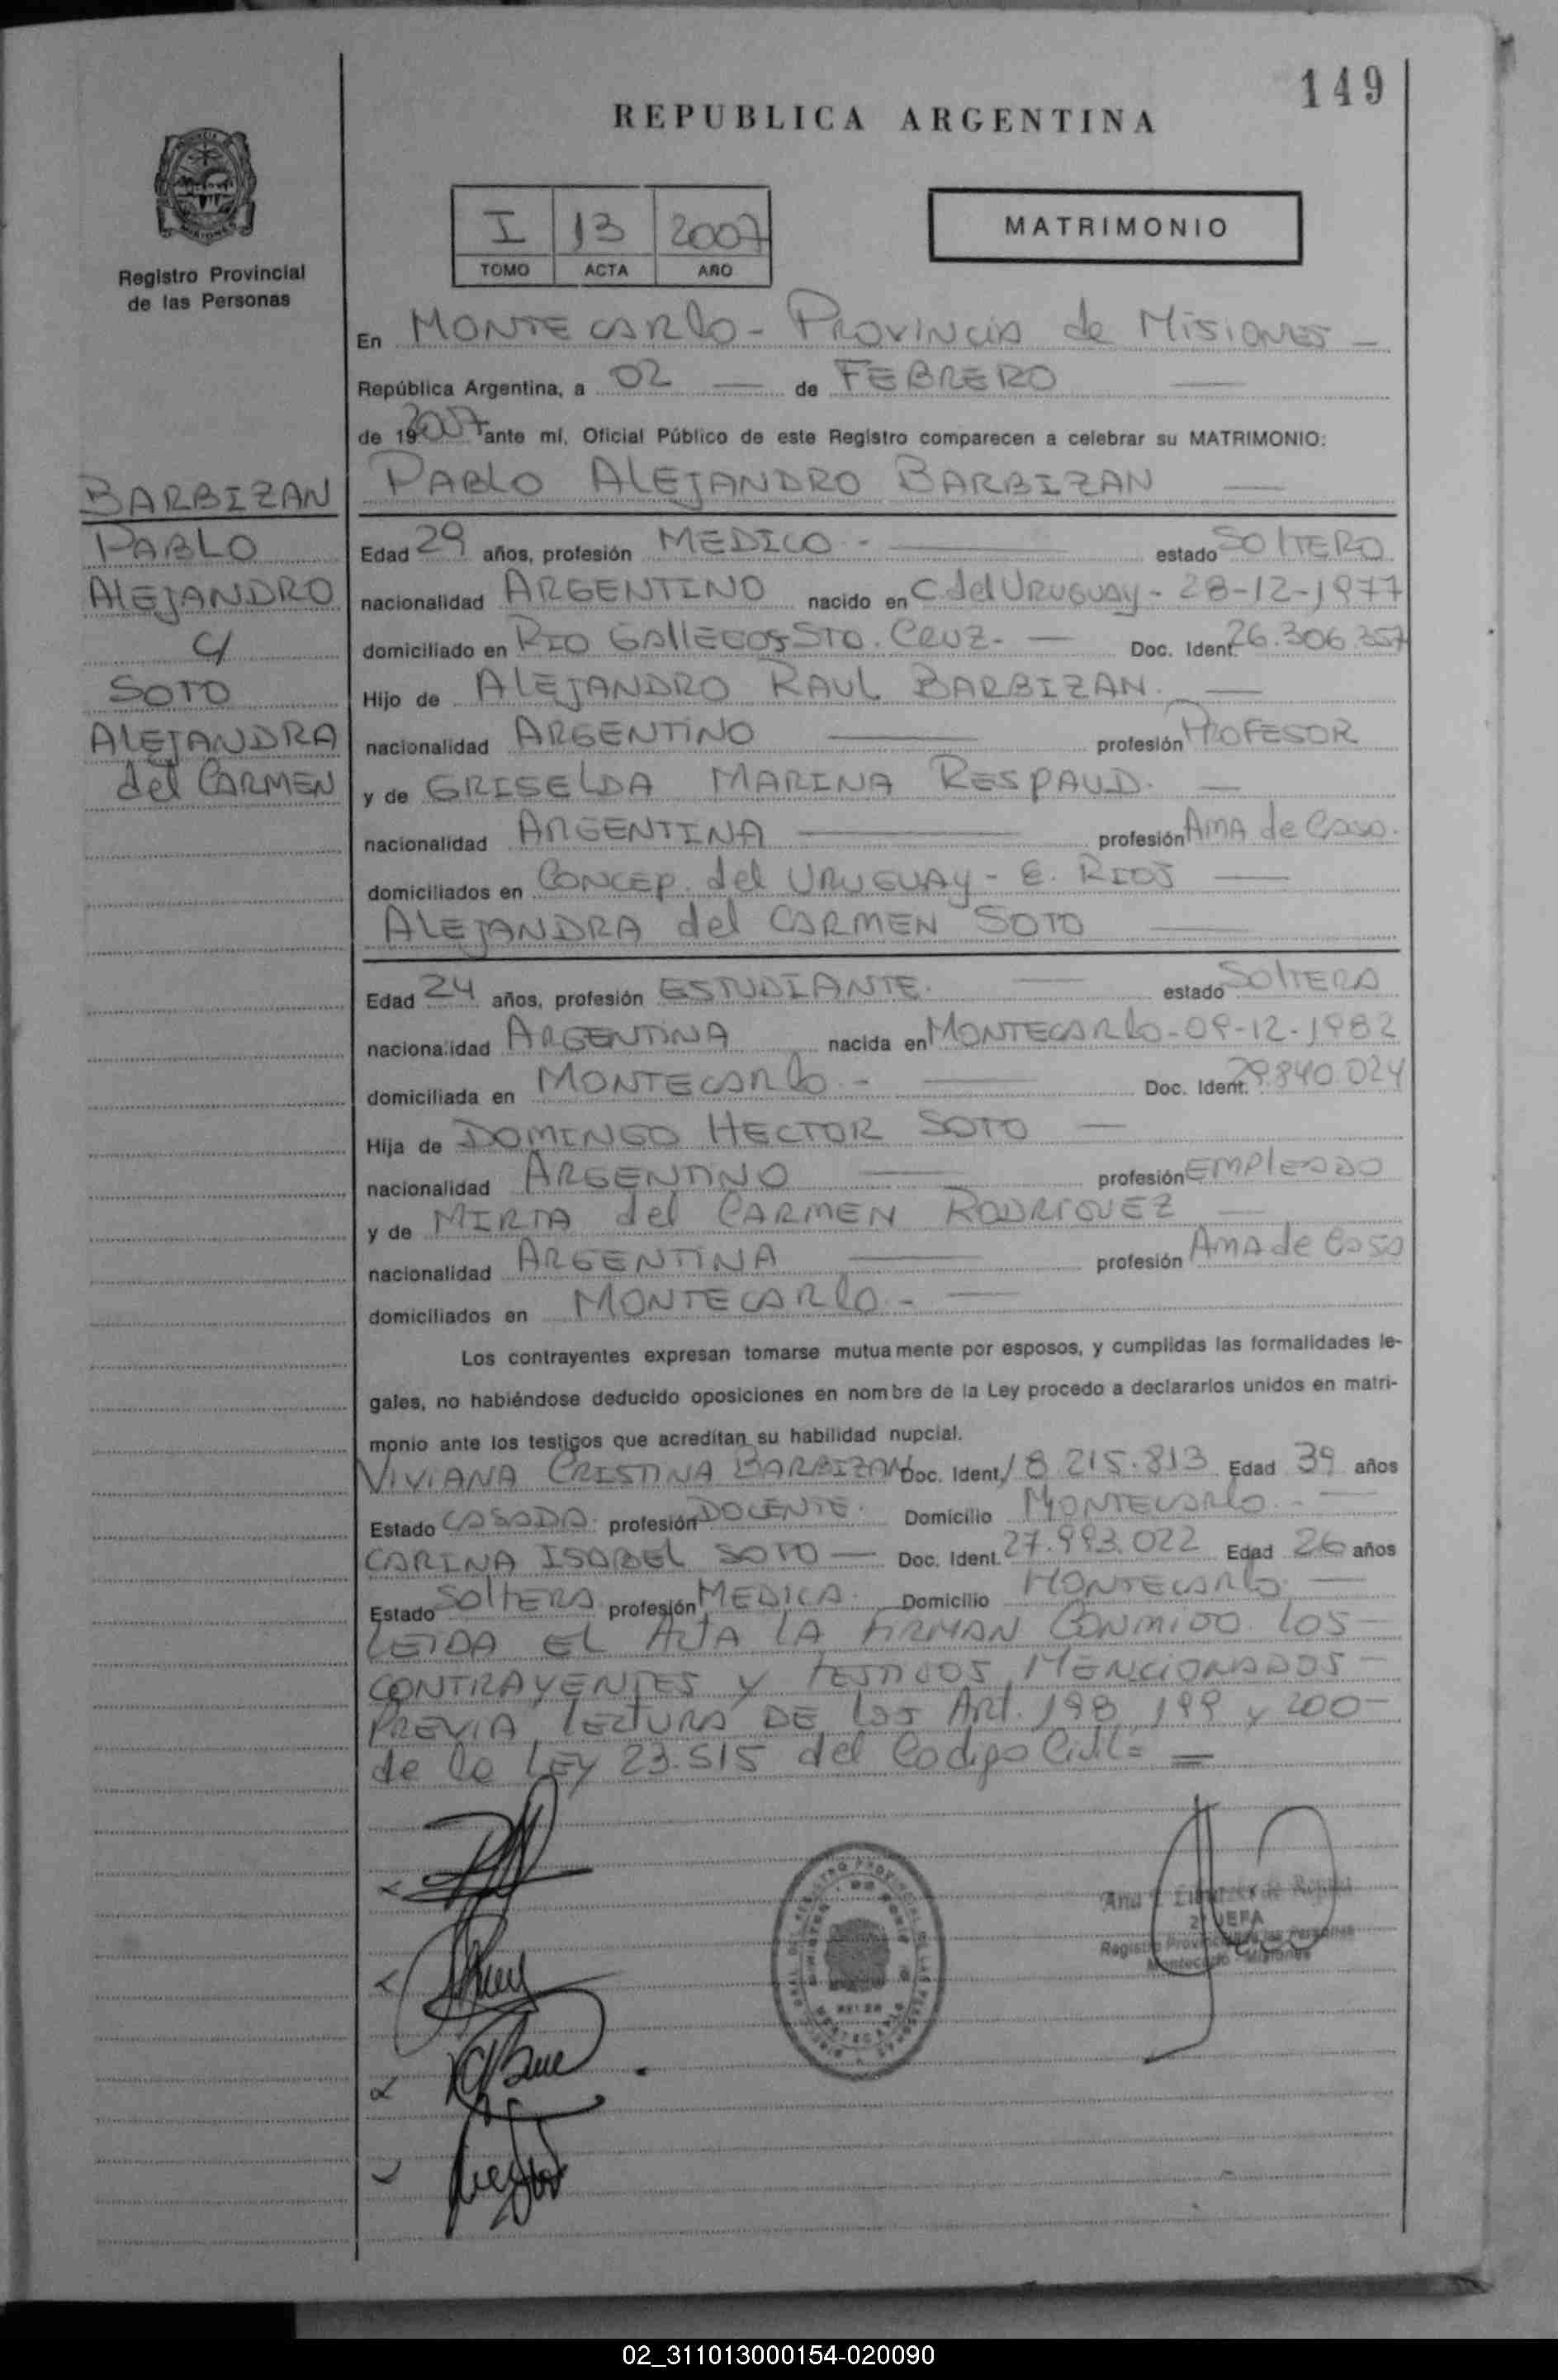 149
REPUBLICA ARGENTINA
Registro Provincial
de las Personas
I 13 2007
TOMO ACTA AÑO
MATRIMONIO
En MONTE CARLO - PROVINCIA de MISIONES
República Argentina, a 02 de FEBRERO
de 2007 ante mí, Oficial Público de este Registro comparecen a celebrar su MATRIMONIO:
BARBIZAN
PABLO
ALEJANDRO
c/
SOTO
ALEJANDRA
del CARMEN
PABLO ALEJANDRO BARBIZAN
Edad 29 años, profesión MEDICO - estado SOLTERO
nacionalidad ARGENTINO nacido en C. del URUGUAY - 28-12-1977
domiciliado en RIO GALLEGOS STA. CRUZ - Doc. Ident. 26.306.357
Hijo de ALEJANDRO RAUL BARBIZAN.
nacionalidad ARGENTINO profesión PROFESOR
y de GRISELDA MARINA RESPAUD.
nacionalidad ARGENTINA profesión AMA de Casa.
domiciliados en CONCEP. del URUGUAY - E. RIOS
ALEJANDRA del CARMEN SOTO
Edad 24 años, profesión ESTUDIANTE. estado SOLTERA
nacionalidad ARGENTINA nacida en MONTECARLO - 09-12-1982
domiciliada en MONTECARLO. - Doc. Ident. 29.840.024
Hija de DOMINGO HECTOR SOTO
nacionalidad ARGENTINO profesión EMPLEADO
y de MIRTA del CARMEN RODRIGUEZ
nacionalidad ARGENTINA profesión AMA de Casa
domiciliados en MONTECARLO. -
Los contrayentes expresan tomarse mutuamente por esposos, y cumplidas las formalidades le-
gales, no habiéndose deducido oposiciones en nombre de la Ley procedo a declararlos unidos en matri-
monio ante los testigos que acreditan su habilidad nupcial.
VIVIANA CRISTINA BARBIZAN Doc. Ident. 18.215.813 Edad 39 años
Estado CASADA. profesión DOCENTE. Domicilio MONTECARLO. -
CARINA ISABEL SOTO - Doc. Ident. 27.993.022 Edad 26 años
Estado SOLTERA profesión MEDICA. Domicilio MONTECARLO
LEIDA EL ACTA LA FIRMAN CONMIGO LOS
CONTRAYENTES Y TESTIGOS MENCIONADOS -
PREVIA LECTURA DE los Art. 198, 199 y 200 -
de la LEY 23.515 del Codigo Civil =
2ª JEFA
Registro Provincial de las Personas
Montecarlo - Misiones
02_311013000154-020090